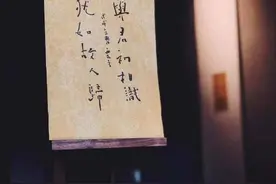 與君初相識
犹如故人歸